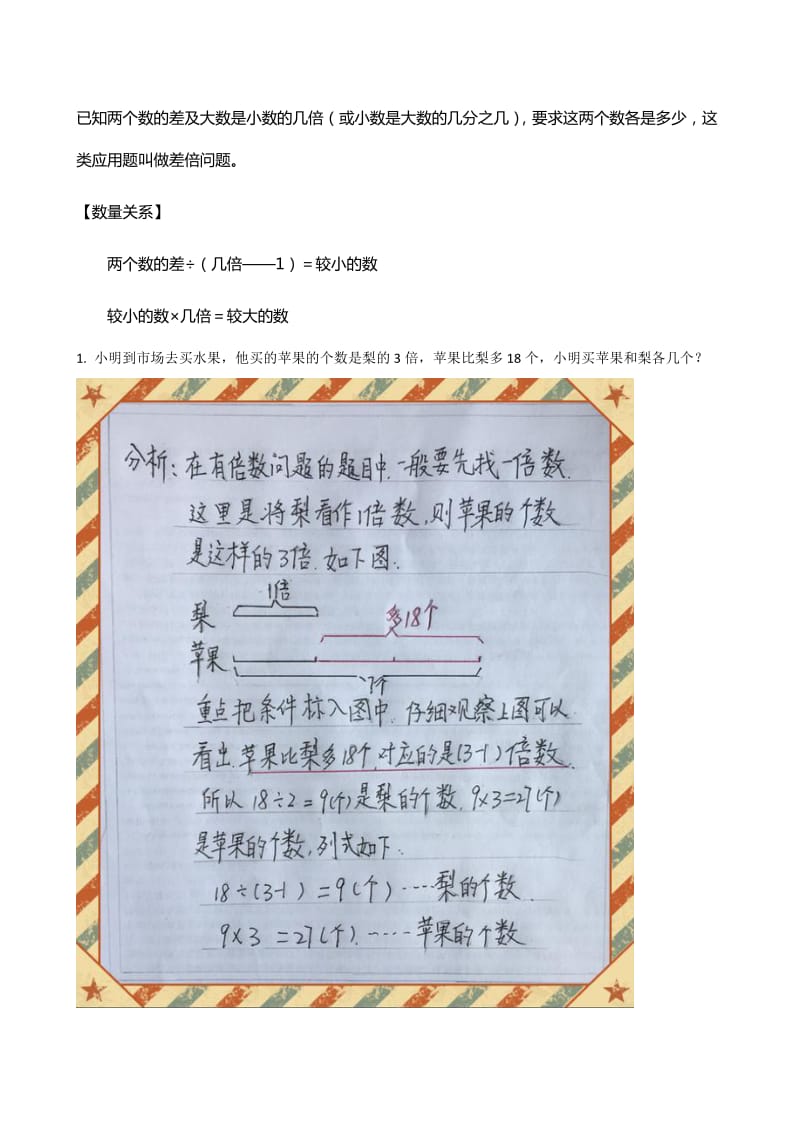 已知两个数的差及大数是小数的几倍（或小数是大数的几分之几），要求这两个数各是多少，这
类应用题叫做差倍问题。
【数量关系】
两个数的差÷（几倍——1）＝较小的数
较小的数×几倍＝较大的数
1. 小明到市场去买水果，他买的苹果的个数是梨的 3 倍，苹果比梨多 18 个，小明买苹果和梨各几个？
分析：在有倍数问题的题目中，一般要先找一倍数．
这里是将梨看作1倍数，则苹果的个数
是这样的3倍．如下图．
1倍
梨
多18个
苹果
?个
重点把条件标入图中．仔细观察上图可以
看出．苹果比梨多18个，对应的是(3-1)倍数．
所以 18÷2=9(个)是梨的个数．9×3=27(个)
是苹果的个数，列式如下．
18÷(3-1)=9(个)····梨的个数．
9×3 =27(个)．·····苹果的个数